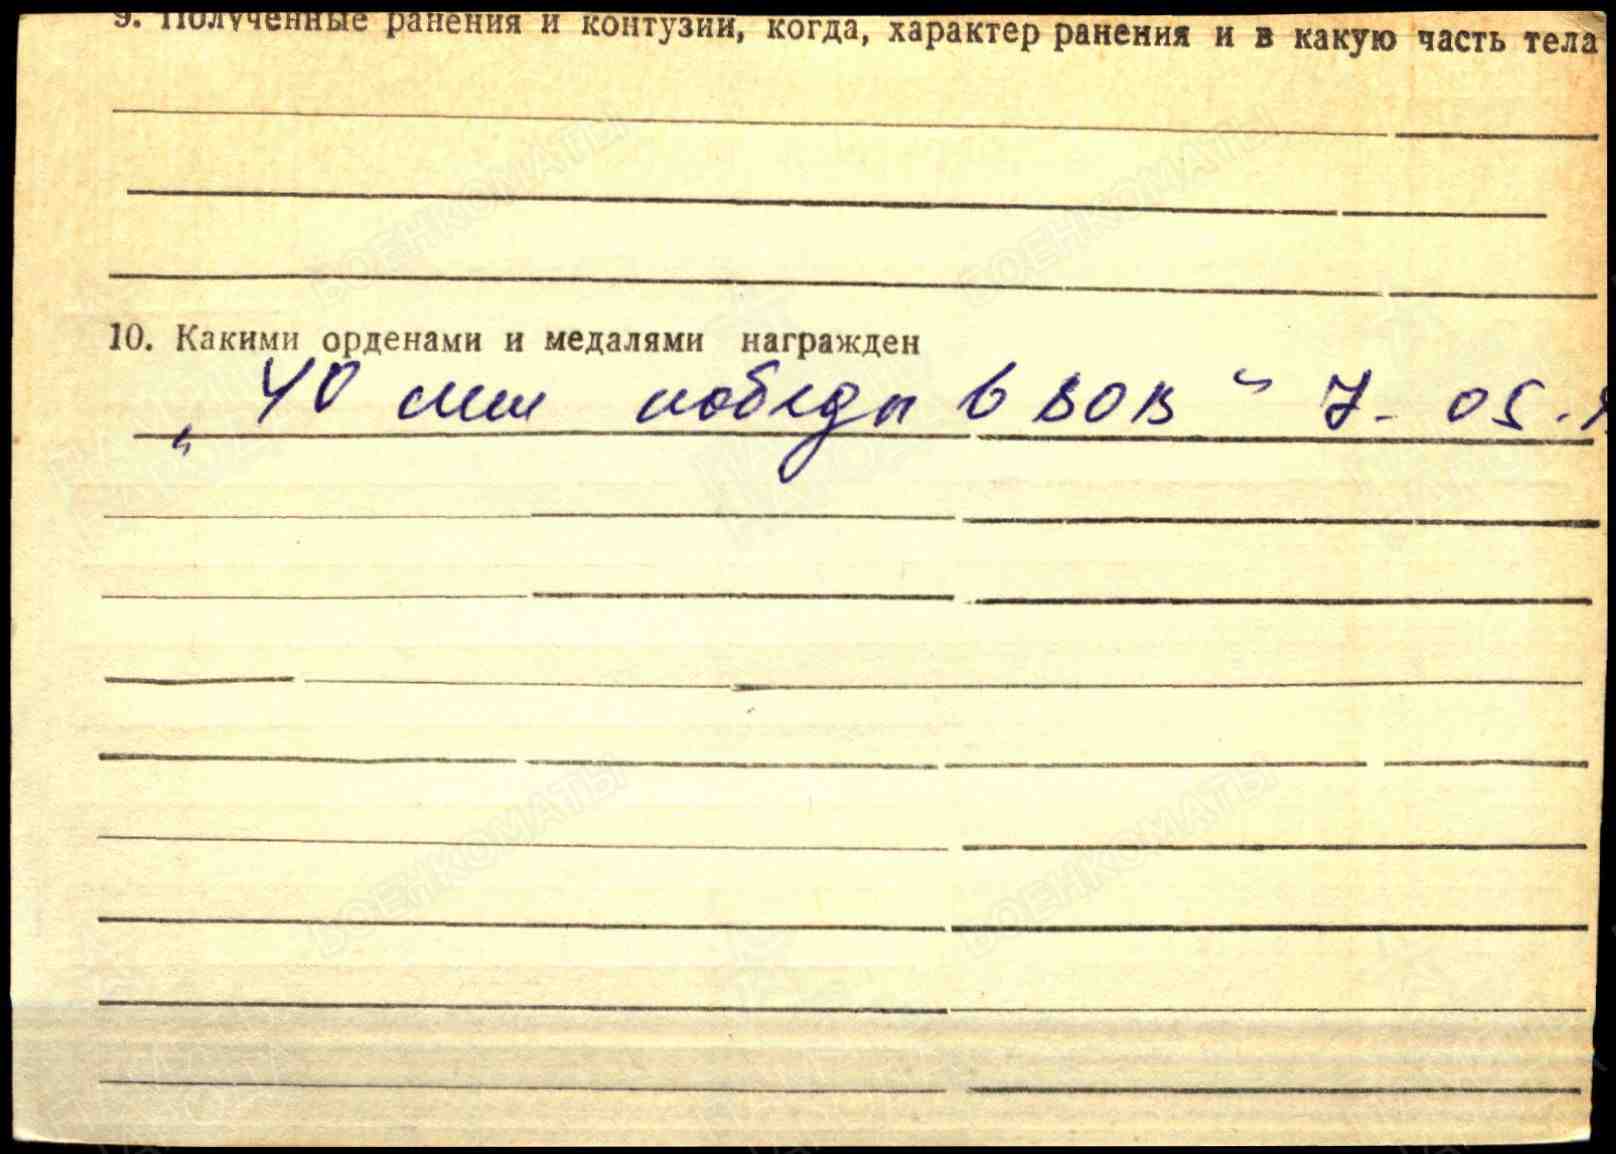 9. Полученные ранения и контузии, когда, характер ранения и в какую часть тела
10. Какими орденами и медалями награжден
„ 40 лет победы в ВОВ “ 7. 05.
ВОЕНКОМАТЫ ВОЕНКОМАТЫ
ВОЕНКОМАТЫ ВОЕНКОМАТЫ